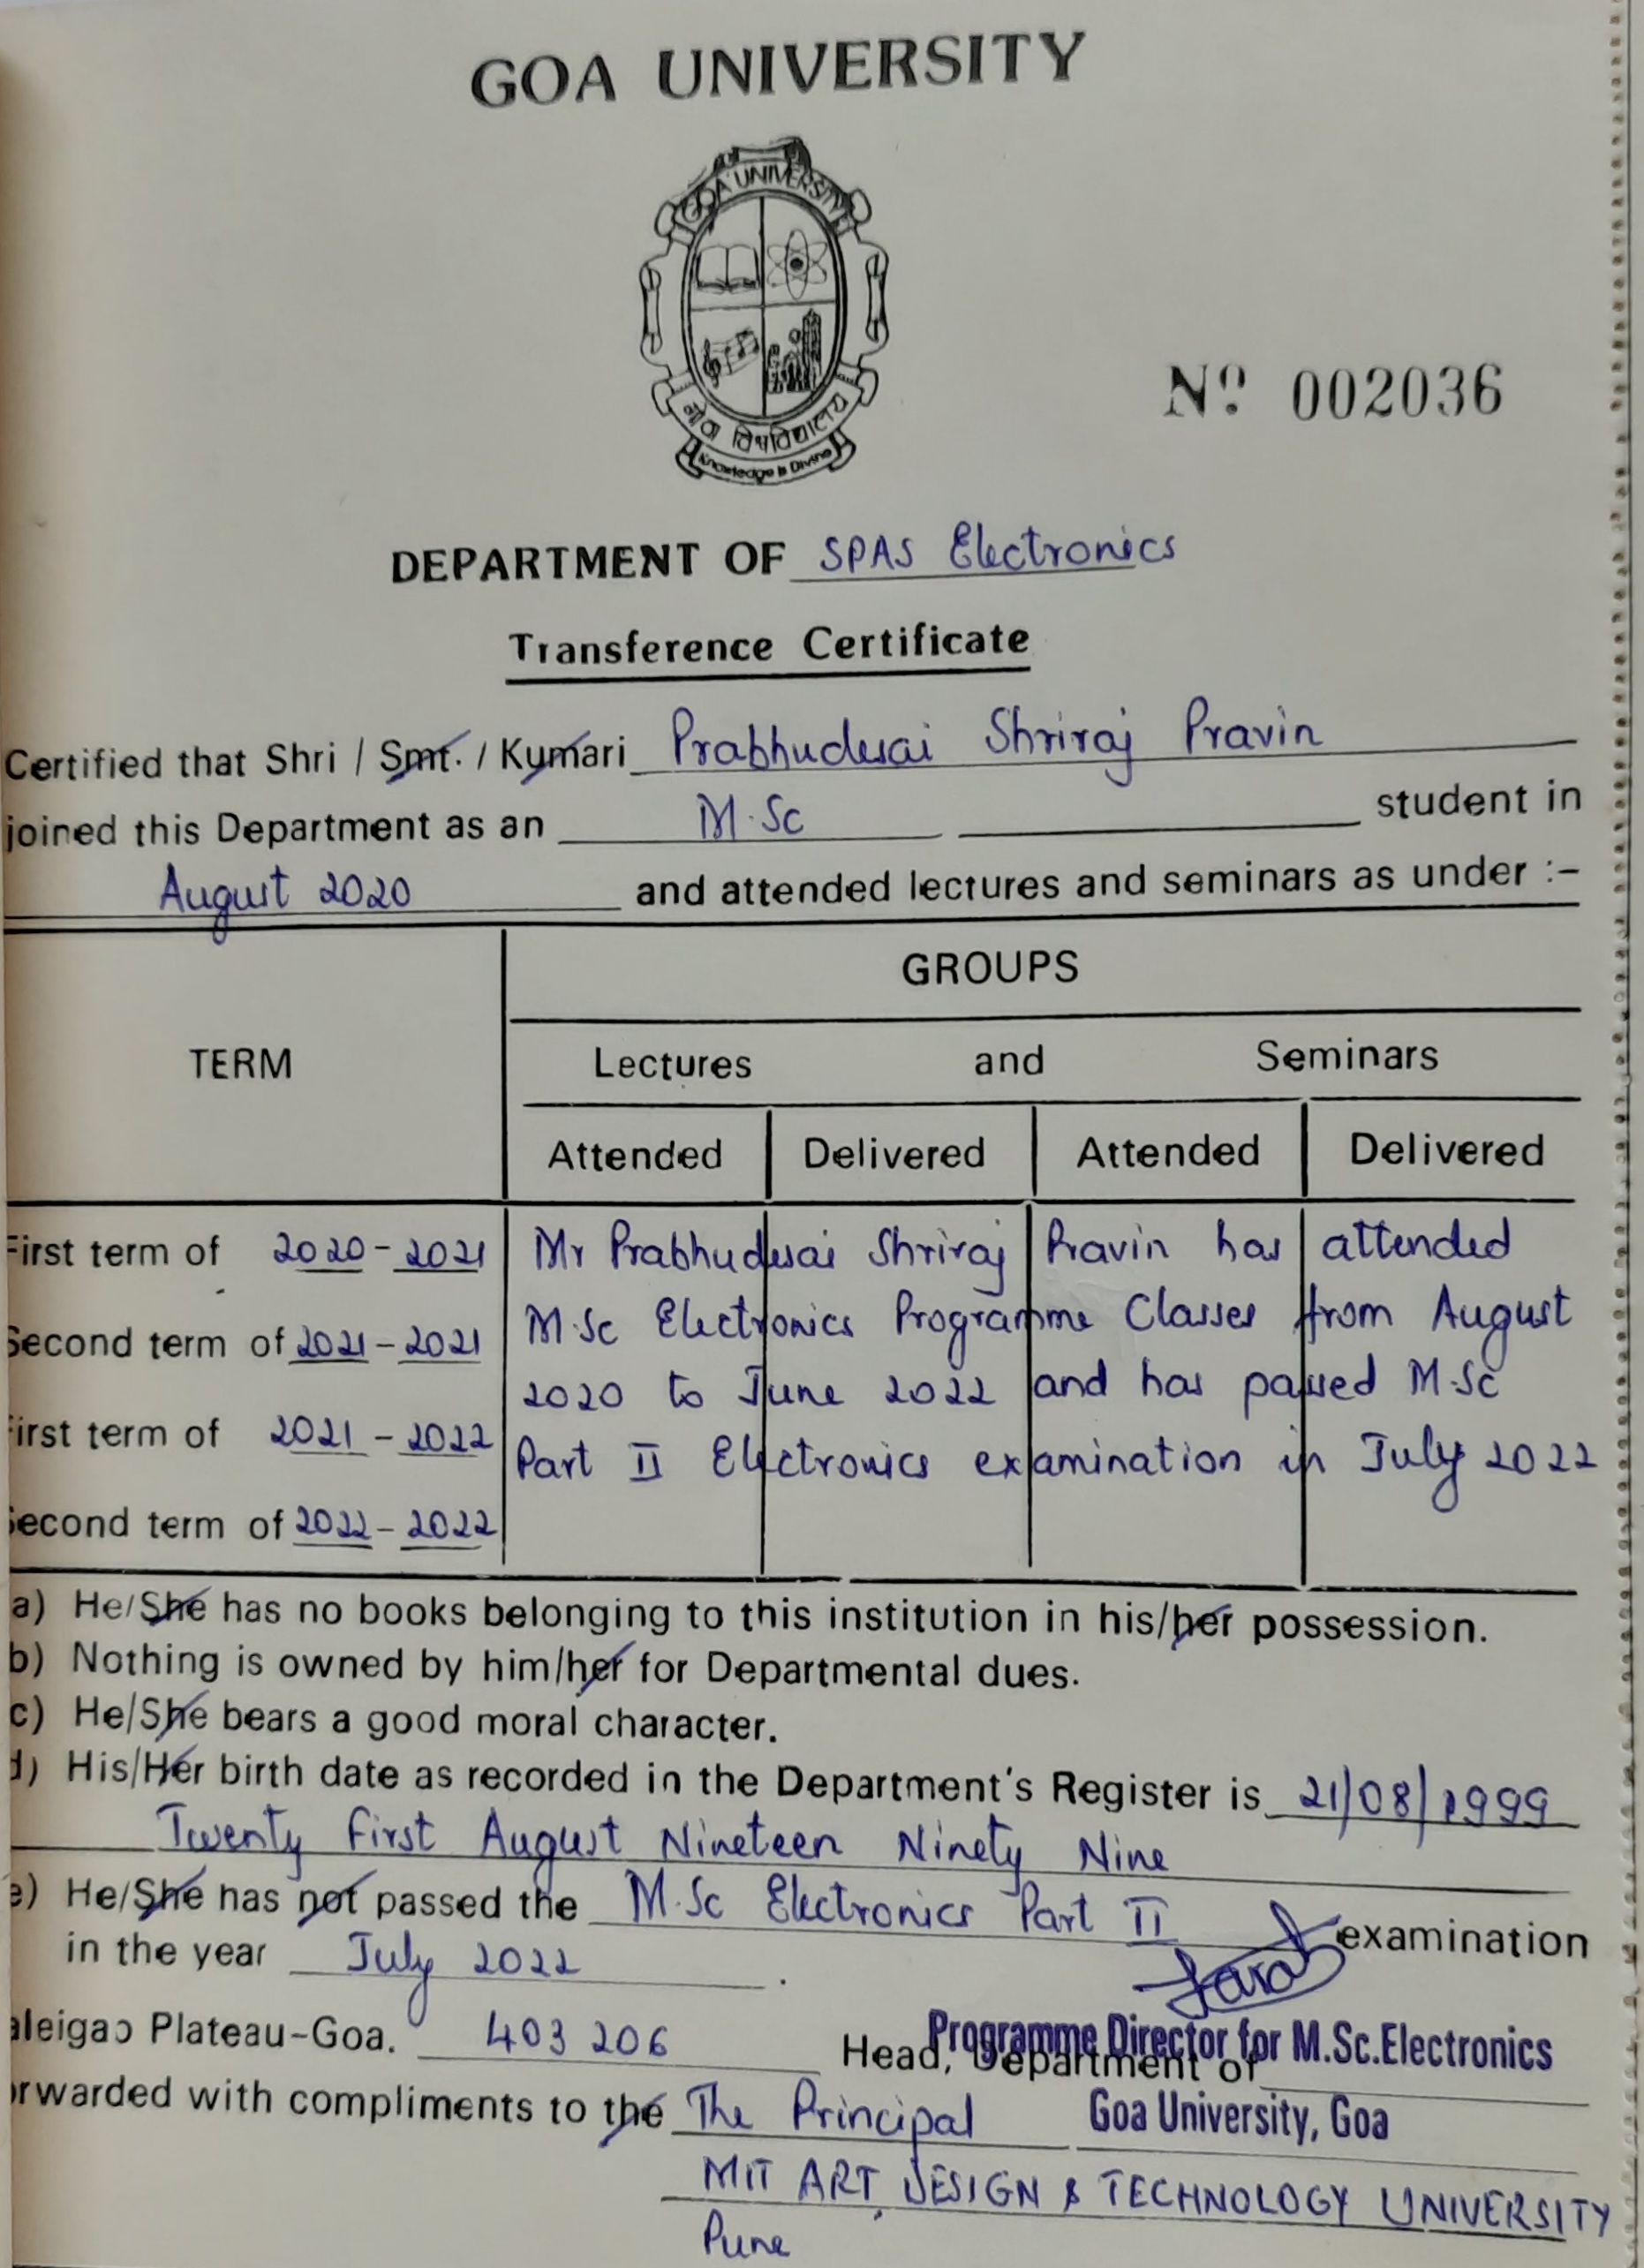 GOA UNIVERSITY
GOA UNIVERSITY
गोंय विद्यापीठ
Knowledge is Divine
Nº 002036
DEPARTMENT OF SPAS Electronics
Transference Certificate
Certified that Shri / Smt. / Kumari Prabhudesai Shriraj Pravin
joined this Department as an M.Sc student in
August 2020 and attended lectures and seminars as under :-
TERM
GROUPS
Lectures and Seminars
Attended Delivered Attended Delivered
First term of 2020-2021 Mr Prabhudesai Shriraj Pravin has attended
Second term of 2021-2021 M.Sc Electronics Programme Classes from August
2020 to June 2022 and has passed M.Sc
First term of 2021-2022 Part II Electronics examination in July 2022
Second term of 2022-2022
a) He/She has no books belonging to this institution in his/her possession.
b) Nothing is owned by him/her for Departmental dues.
c) He/She bears a good moral character.
d) His/Her birth date as recorded in the Department's Register is 21/08/1999
Twenty First August Nineteen Ninety Nine
e) He/She has not passed the M.Sc Electronics Part II examination
in the year July 2022.
aleigao Plateau-Goa. 403 206 Head, Department of
Programme Director for M.Sc.Electronics
Goa University, Goa
orwarded with compliments to the The Principal
MIT ART, DESIGN & TECHNOLOGY UNIVERSITY
Pune